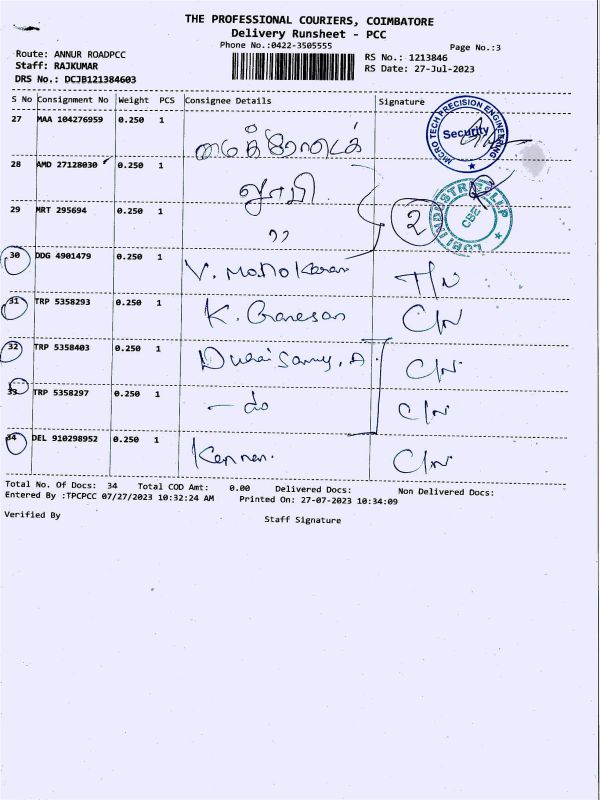 THE PROFESSIONAL COURIERS, COIMBATORE
Delivery Runsheet - PCC
Phone No.:0422-3505555
Page No.:3
Route: ANNUR ROADPCC
Staff: RAJKUMAR
DRS No.: DCJB121384603
RS No.: 1213846
RS Date: 27-Jul-2023
S No Consignment No Weight PCS Consignee Details Signature
27 MAA 104276959 0.250 1
MICRO TECH PRECISION ENGINEERING
Security
28 AMD 27128030 0.250 1 லூபி
29 MRT 295694 0.250 1 ,, 2
LUBI INDUSTRIES LLP
CBE
30 DDG 4901479 0.250 1 V. Manokaran T/N
31 TRP 5358293 0.250 1 K. Ganesan C/N
32 TRP 5358403 0.250 1 Duraisamy. A C/N
33 TRP 5358297 0.250 1 - do C/N
34 DEL 910298952 0.250 1 Kannan. C/N
Total No. Of Docs: 34 Total COD Amt: 0.00 Delivered Docs: Non Delivered Docs:
Entered By :TPCPCC 07/27/2023 10:32:24 AM Printed On: 27-07-2023 10:34:09
Verified By
Staff Signature